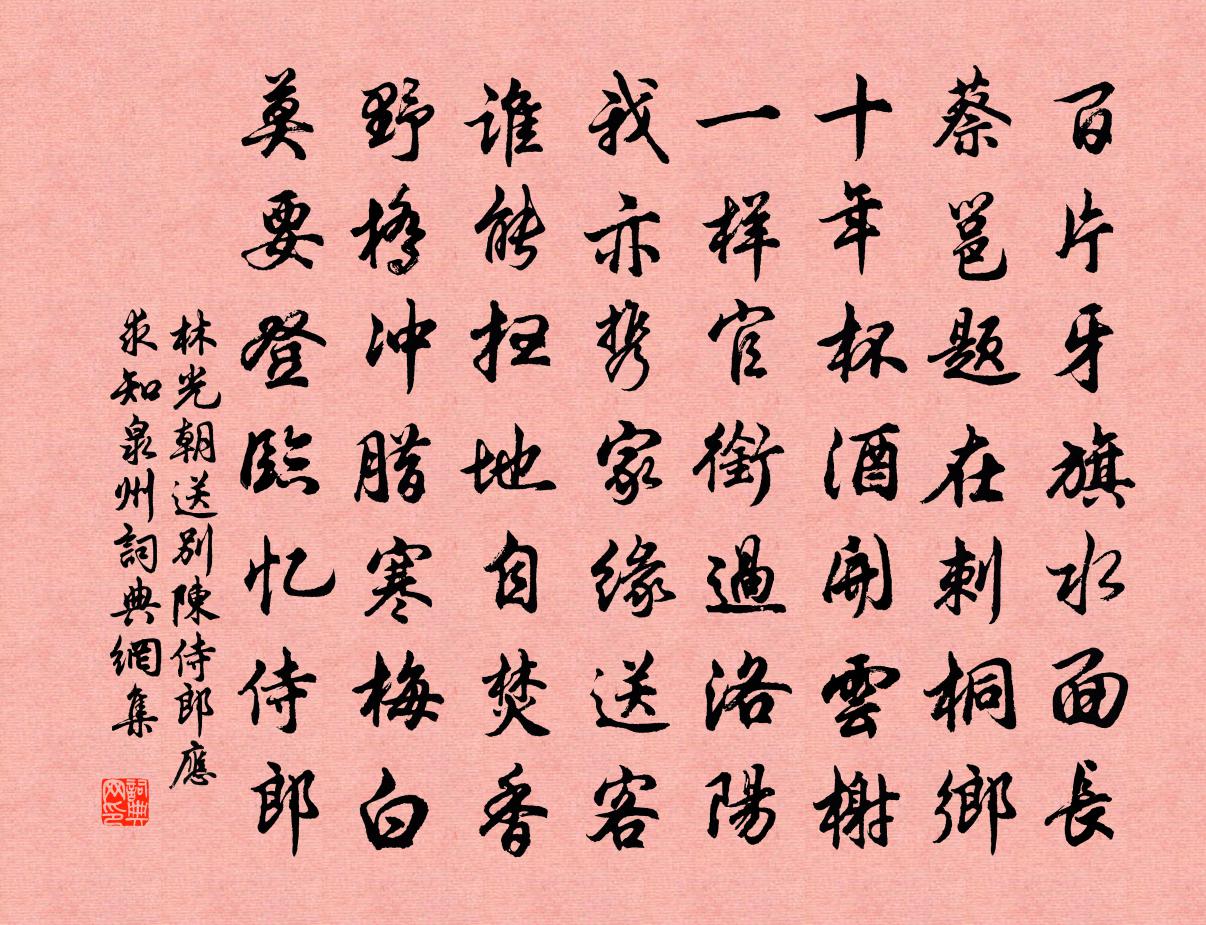 百片牙旗水面長
蔡邕題在刺桐鄉
十年杯酒開雲榭
一样官銜過洛陽
我亦携家缘送客
谁能扫地自焚香
野橋冲腊寒梅白
莫要登臨忆侍郎
林光朝送别陳侍郎應
求知泉州詞典網集
詞典
网印